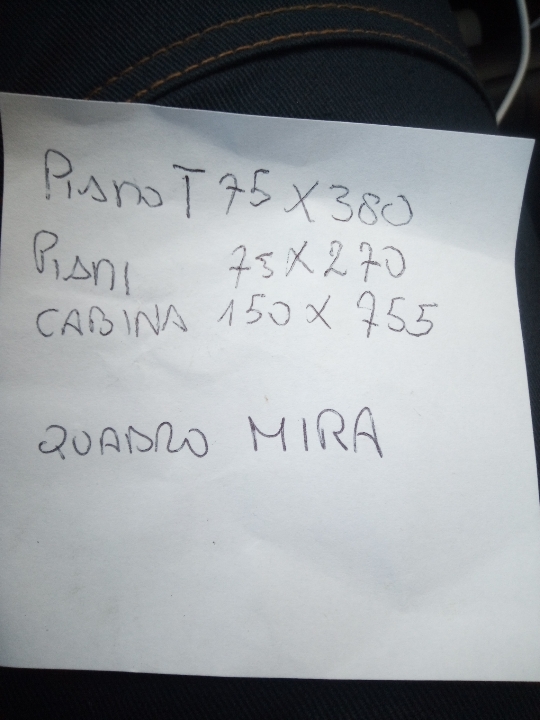 PIANO T 75 X 380
PIANI 75 X 270
CABINA 150 X 755
QUADRO MIRA